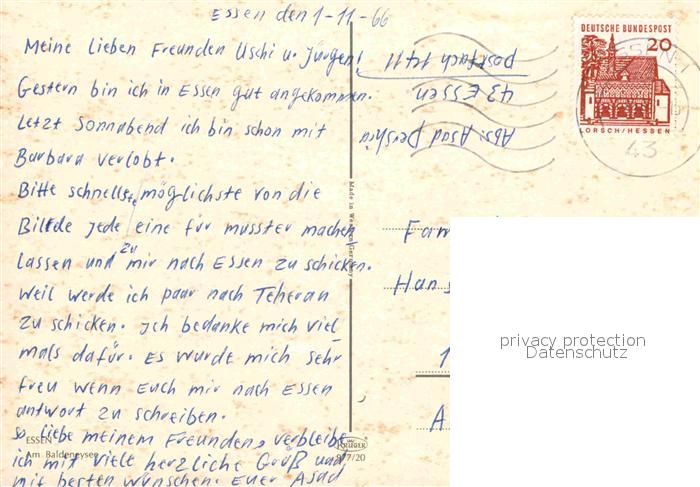 Essen den 1-11-66
Meine lieben Freunden Uschi u. Jurgen!
Gestern bin ich in Essen gut angekommen.
Letzt Sonnabend ich bin schon mit
Barbara verlobt.
Bitte schnellste möglichste von die
Bilde jede eine für musster machen
lassen und zu mir nach Essen zu schicken.
weil werde ich paar nach Teheran
zu schicken. Ich bedanke mich viel-
mals dafür. Es wurde mich sehr
freu wenn Euch mir nach Essen
antwort zu schreiben.
so liebe meinem Freunden, verbleibe
ich mit viele herzliche Gruß und
mit besten wünschen. Euer Asad
ESSEN
Am Baldeneysee
Made in Western Germany
KRÜGER
Abs: Asad
43 Essen
postfach 1411
DEUTSCHE BUNDESPOST
20
LORSCH/HESSEN
43
Fam
Hans
1
A
privacy protection
Datenschutz